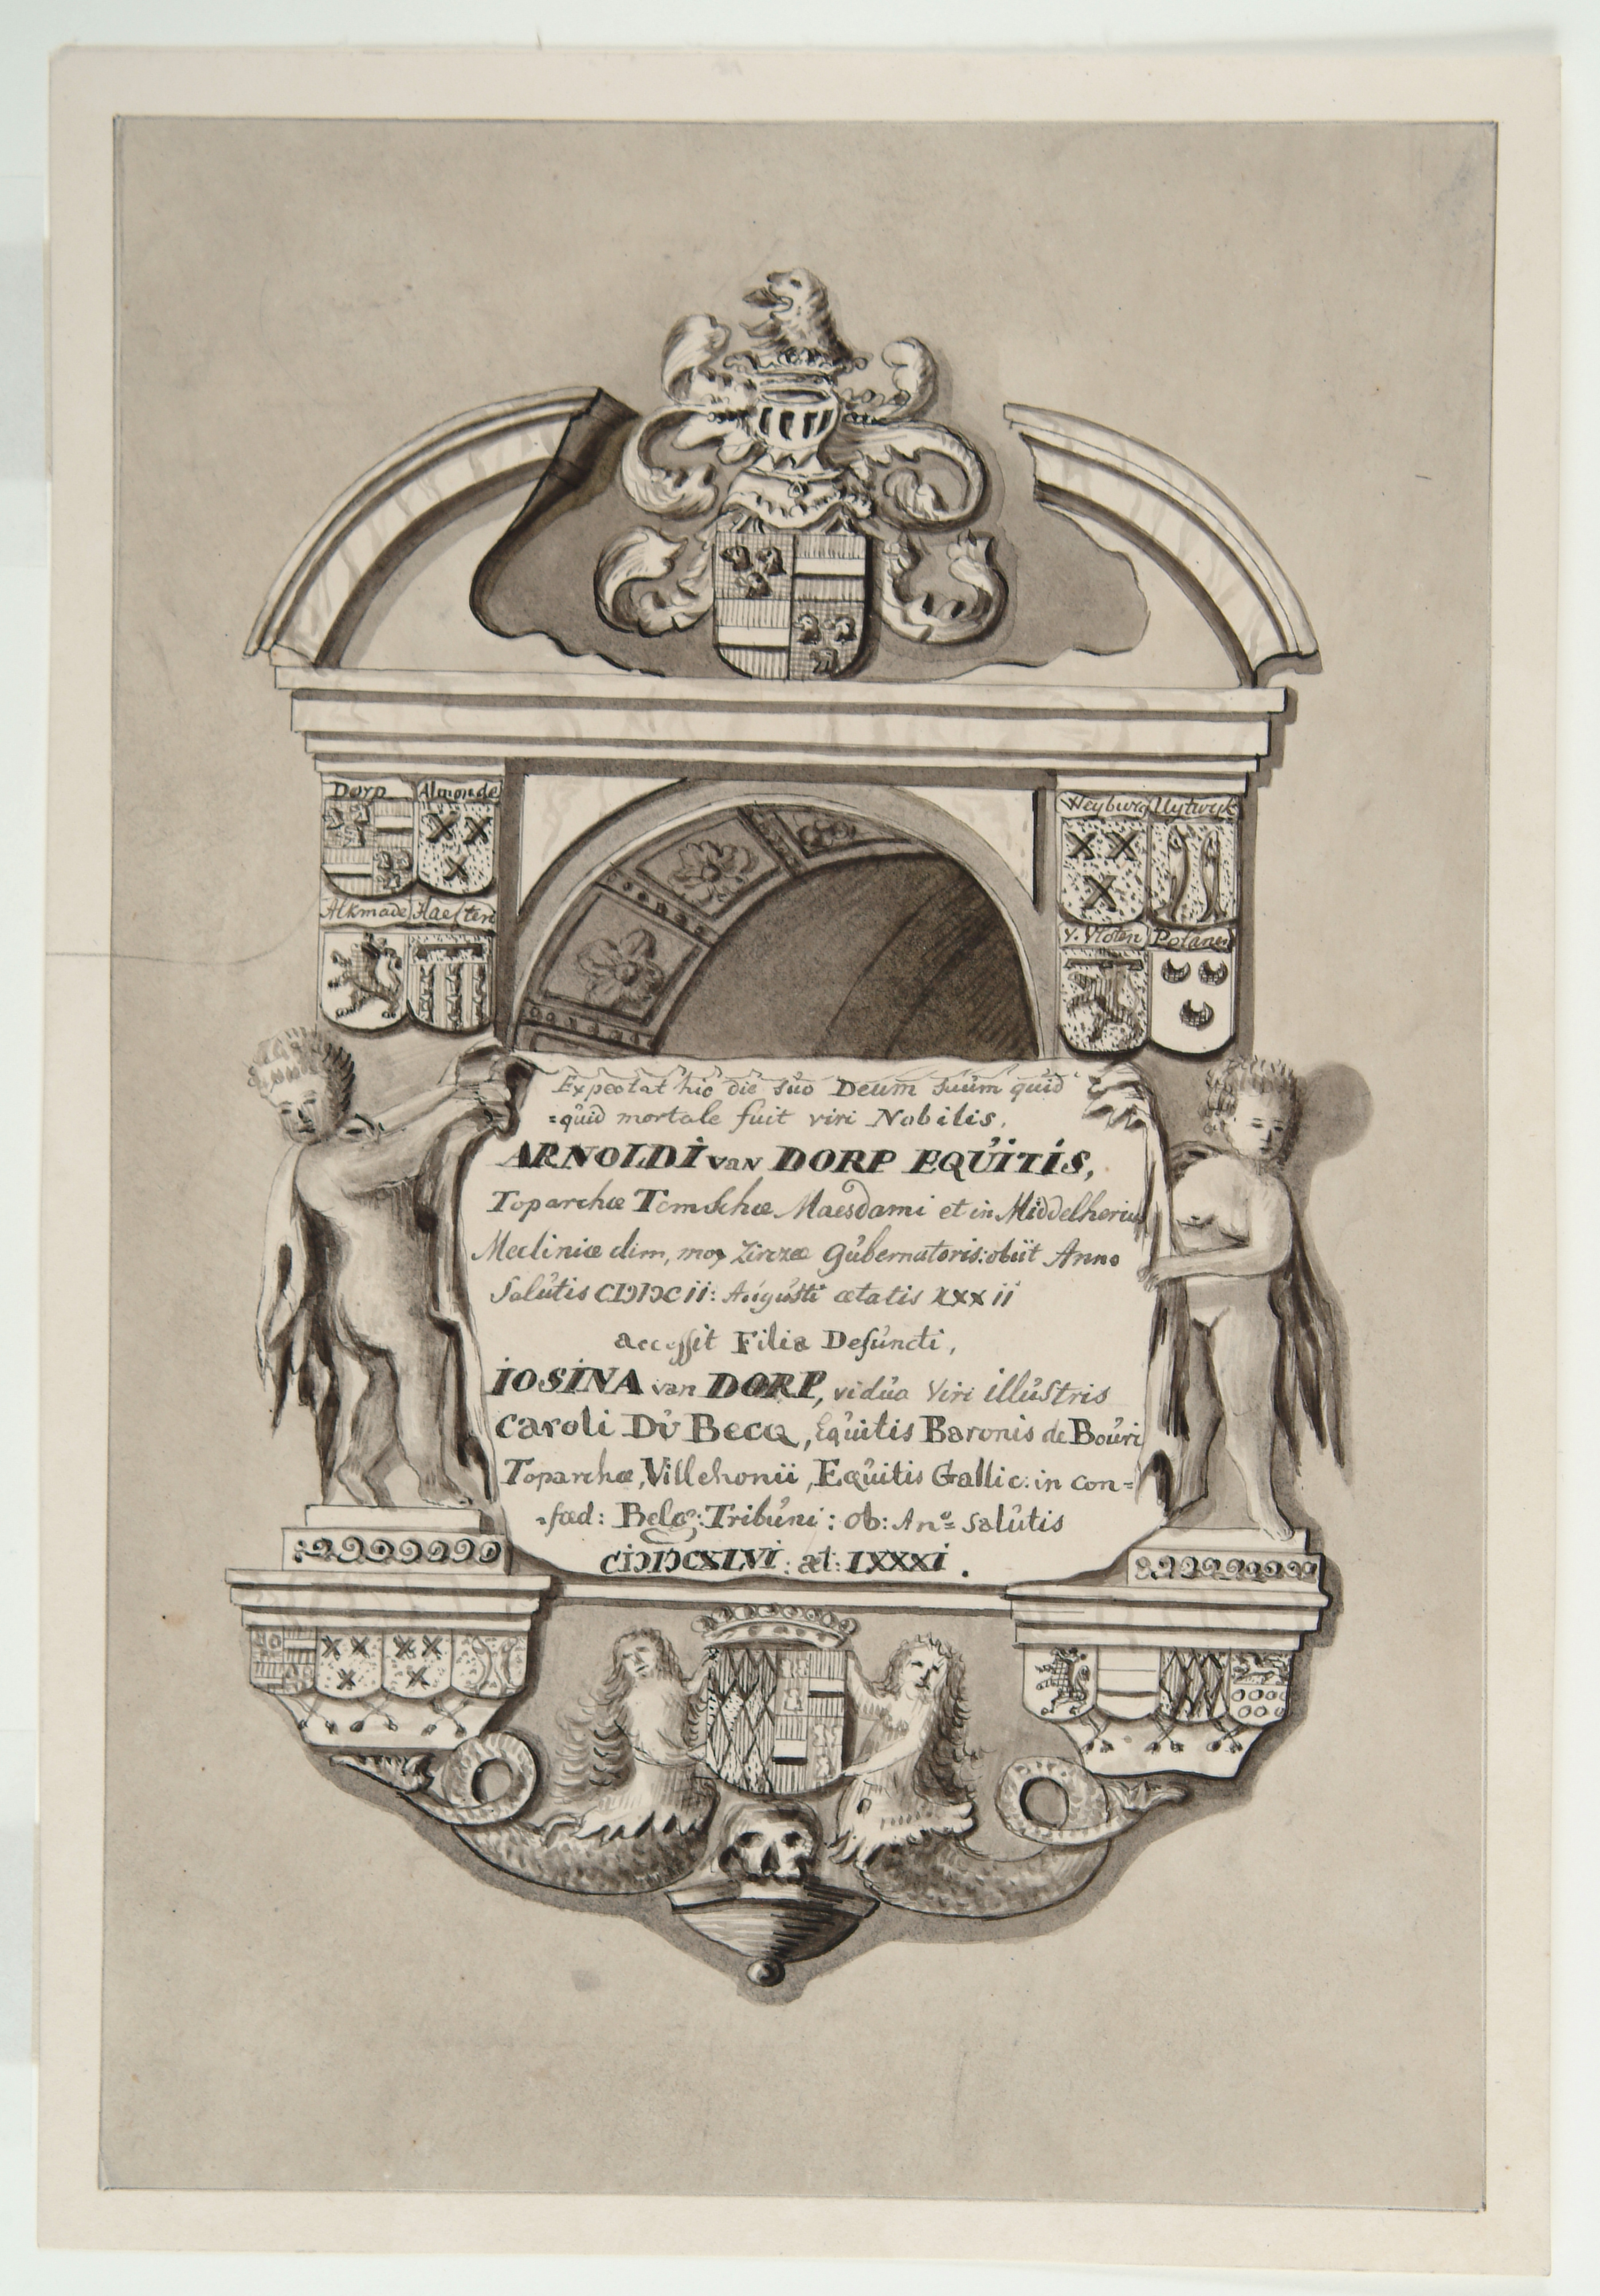 Dorp Almonde
Weyburg Uytwyk
Alkmade Haesten
v. Vloten Polanen
Expectat hic die suo Deum suum quid
=quid mortale fuit viri Nobilis,
ARNOLDI van DORP EQUITIS,
Toparchæ Temschæ Maesdami et in Middelherius
Mecliniæ dim, mox Zirczeæ Gubernatoris: obiit Anno
Salutis CIↃIↃCII: Augusti ætatis XXXII
accessit Filia Defuncti,
IOSINA van DORP, vidua Viri illustris
Caroli Du Becq, Equitis Baronis de Bouri
Toparchæ, Villehonii, Equitis Gallic: in con=
=fœd: Belg: Tribuni: Ob: An.º Salutis
CIↃIↃCXLVI: æt: LXXXI.